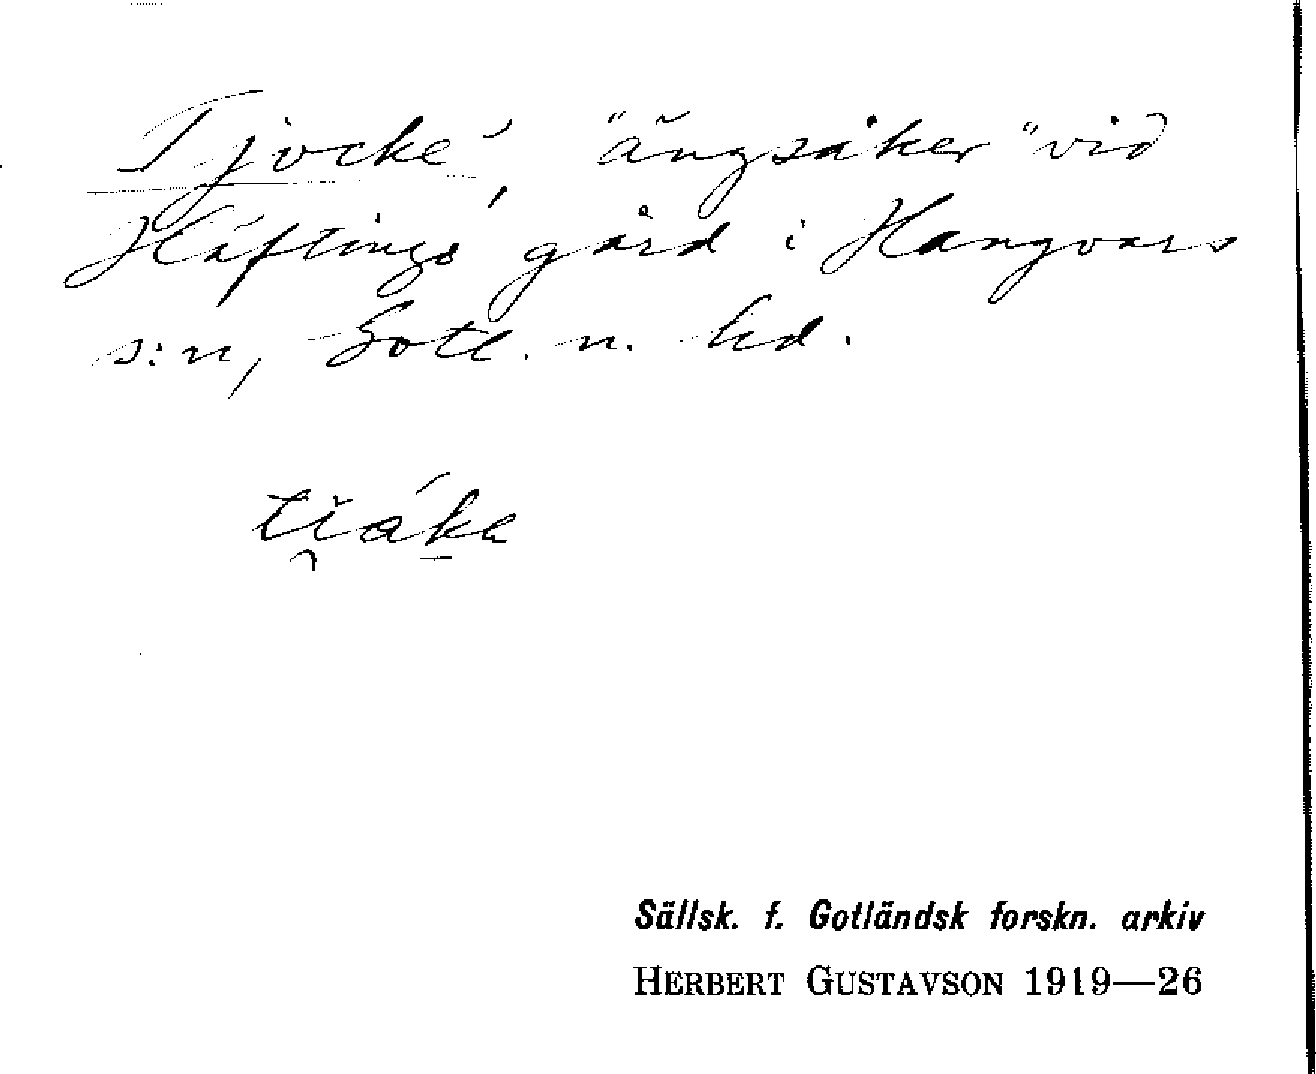 Tjocke, "ängsåker" vid
Häftings gård i Hangvars
s:n, Gotl. n. hd.
Sällsk. f. Gotländsk forskn. arkiv
HERBERT GUSTAVSON 1919—26